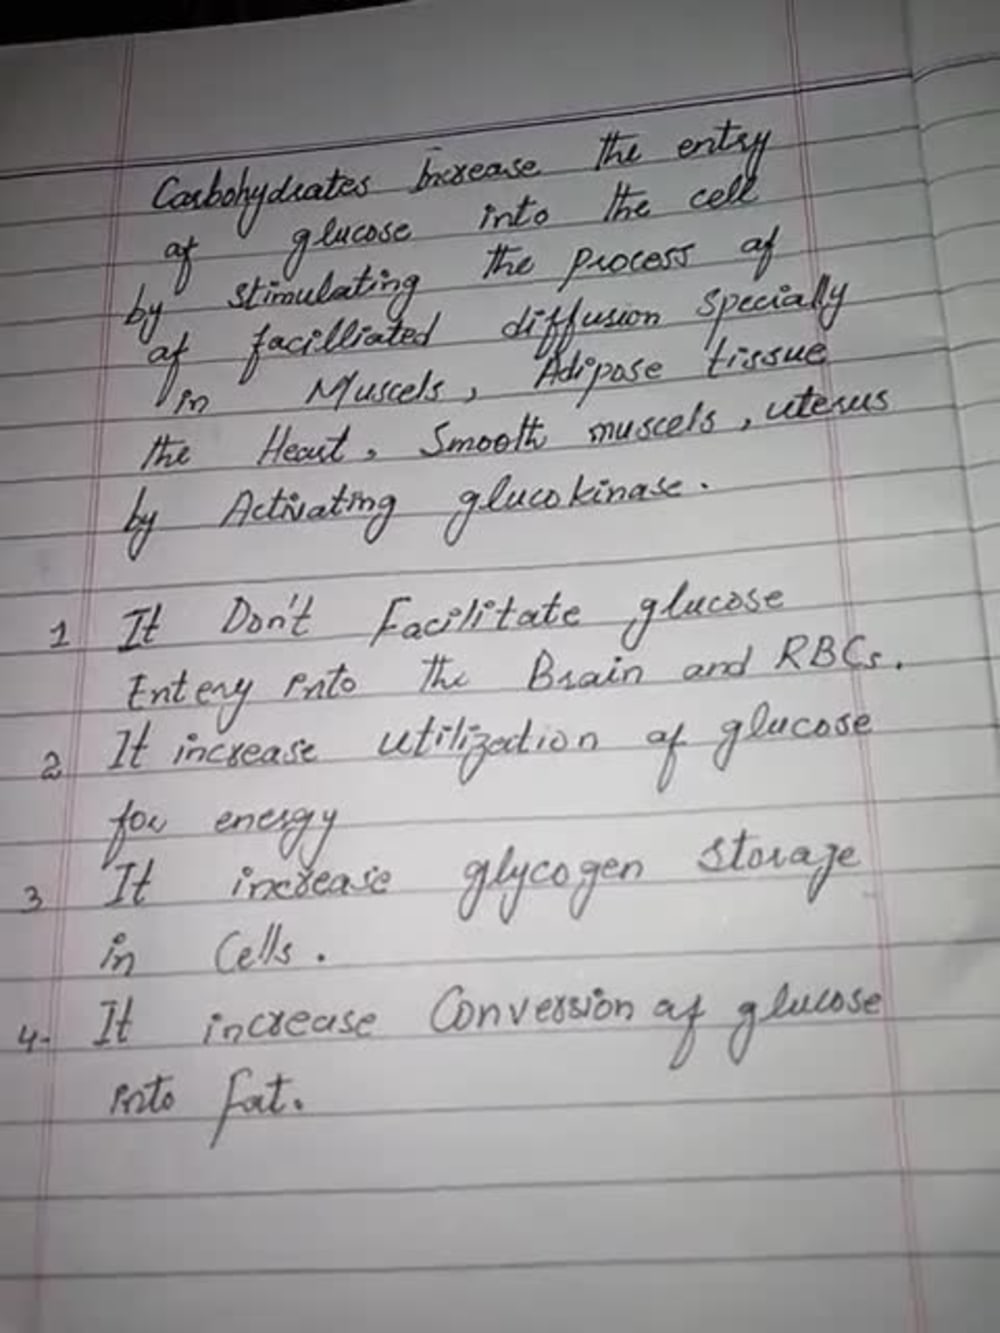 Carbohydrates Increase the entry
of glucose into the cell
by stimulating the process of
of facilliated diffusion specially
in Muscels, Adipose tissue
the Heart, Smooth muscels, uterus
by Activating glucokinase.
1 It Don't Facilitate glucose
Entery into the Brain and RBCs.
2 It increase utilization of glucose
for energy
3 It increase glycogen storage
in Cells.
4- It increase Conversion of glucose
into fat.